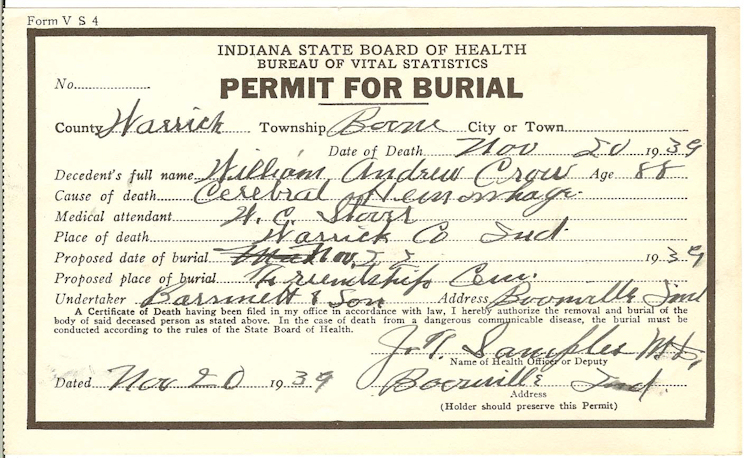 Form V S 4
INDIANA STATE BOARD OF HEALTH
BUREAU OF VITAL STATISTICS
PERMIT FOR BURIAL
No.
County Warrick Township Boone City or Town
Date of Death Nov 20 1939
Decedent's full name William Andrew Crow Age 88
Cause of death Cerebral Hemorrhage
Medical attendant W. C. Stover
Place of death Warrick Co Ind.
Proposed date of burial Nov. 22 1939
Proposed place of burial Friendship Cem.
Undertaker & Son Address Boonville Ind
A Certificate of Death having been filed in my office in accordance with law, I hereby authorize the removal and burial of the
body of said deceased person as stated above. In the case of death from a dangerous communicable disease, the burial must be
conducted according to the rules of the State Board of Health.
J. T. Samples M.D.
Name of Health Officer or Deputy
Dated Nov 20 1939 Boonville Ind
Address
(Holder should preserve this Permit)